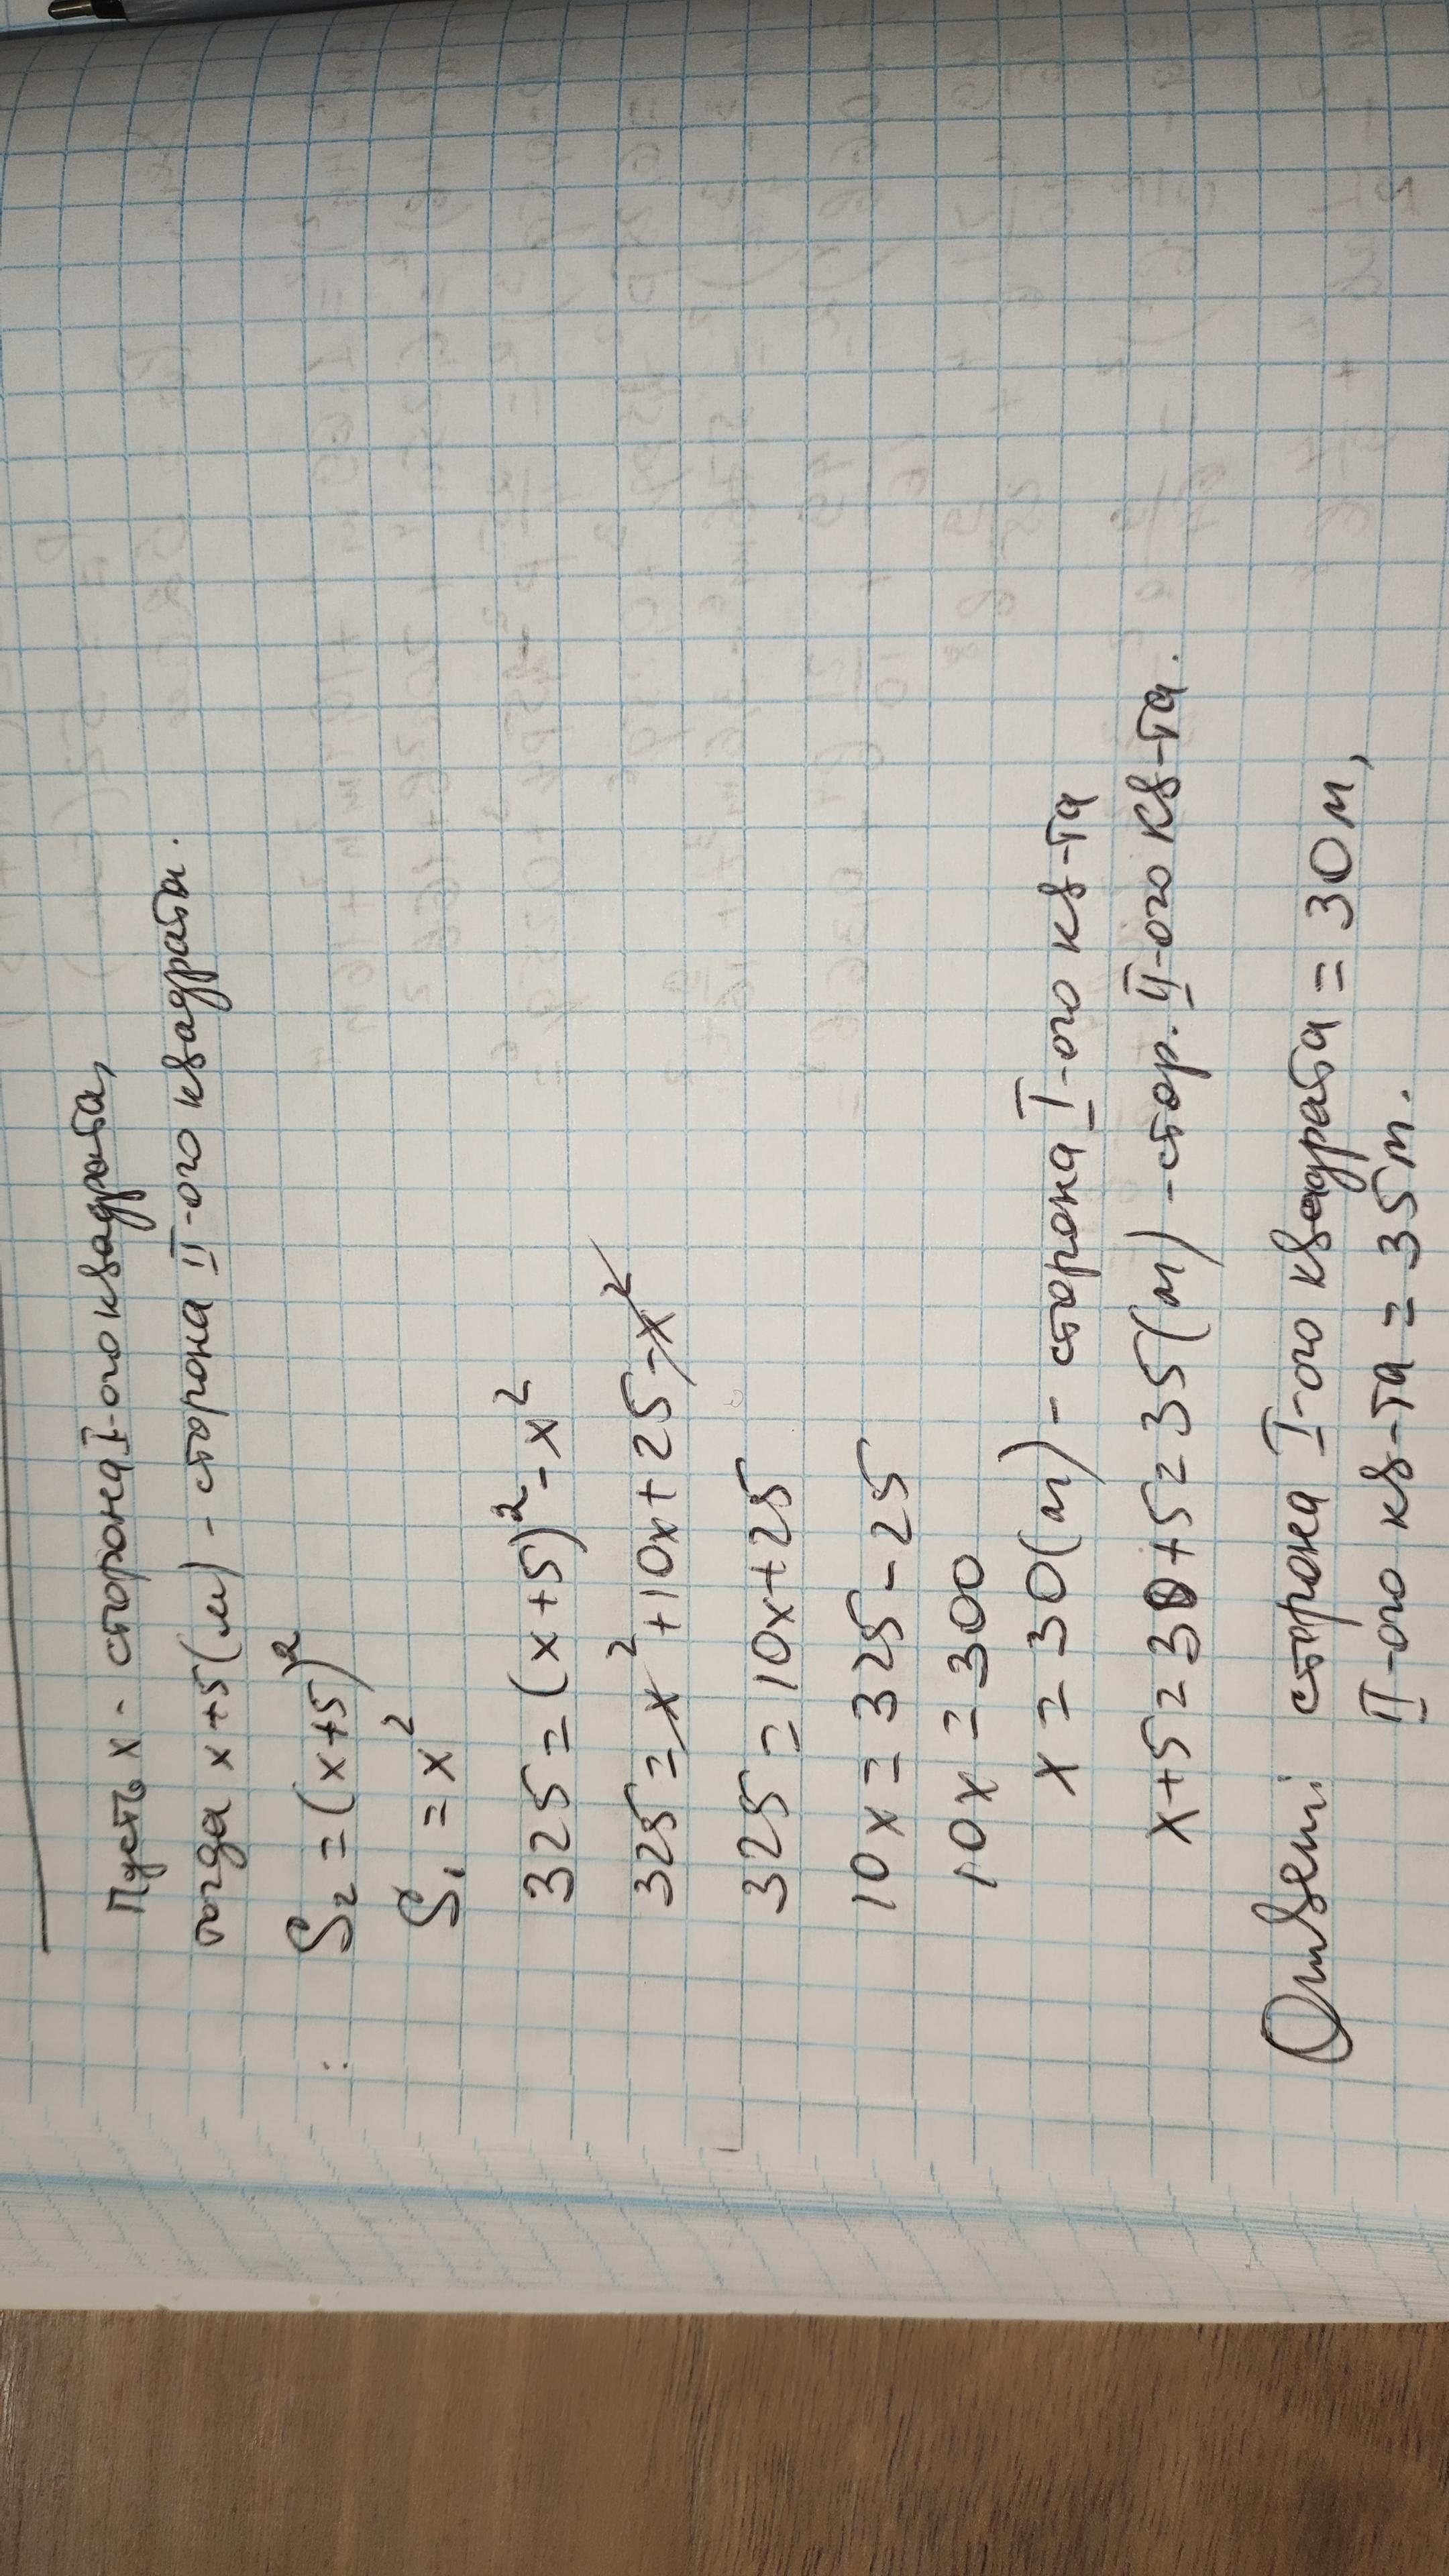 Пусть x - сторона I-ого квадрата,
тогда x+5(м) - сторона II-ого квадрата.
S₂ = (x+5)²
S₁ = x²
325 = (x+5)² - x²
325 = x² + 10x + 25 - x²
325 = 10x + 25
10x = 325 - 25
10x = 300
x = 30(м) - сторона I-ого кв-та
x+5 = 30+5 = 35(м) - стор. II-ого кв-та.
Ответ: сторона I-ого квадрата = 30м,
II-ого кв-та = 35м.